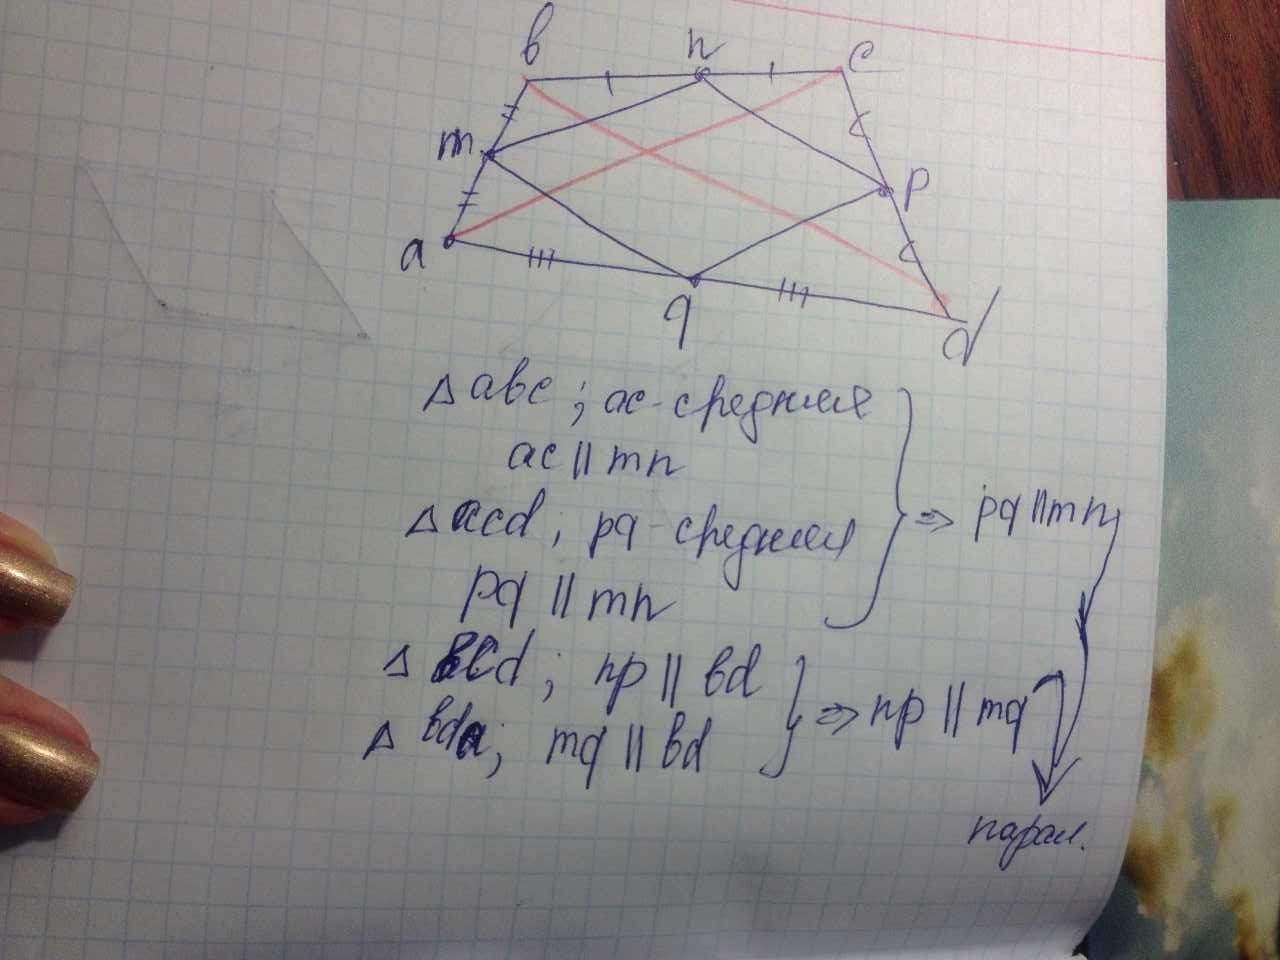 b n c
m p
a q d
Δ abc ; ac - средняя
ac || mn
Δ acd ; pq - средняя
pq || mn
⇒ pq || mn
Δ bcd ; np || bd
Δ bda ; mq || bd
⇒ np || mq
парал.